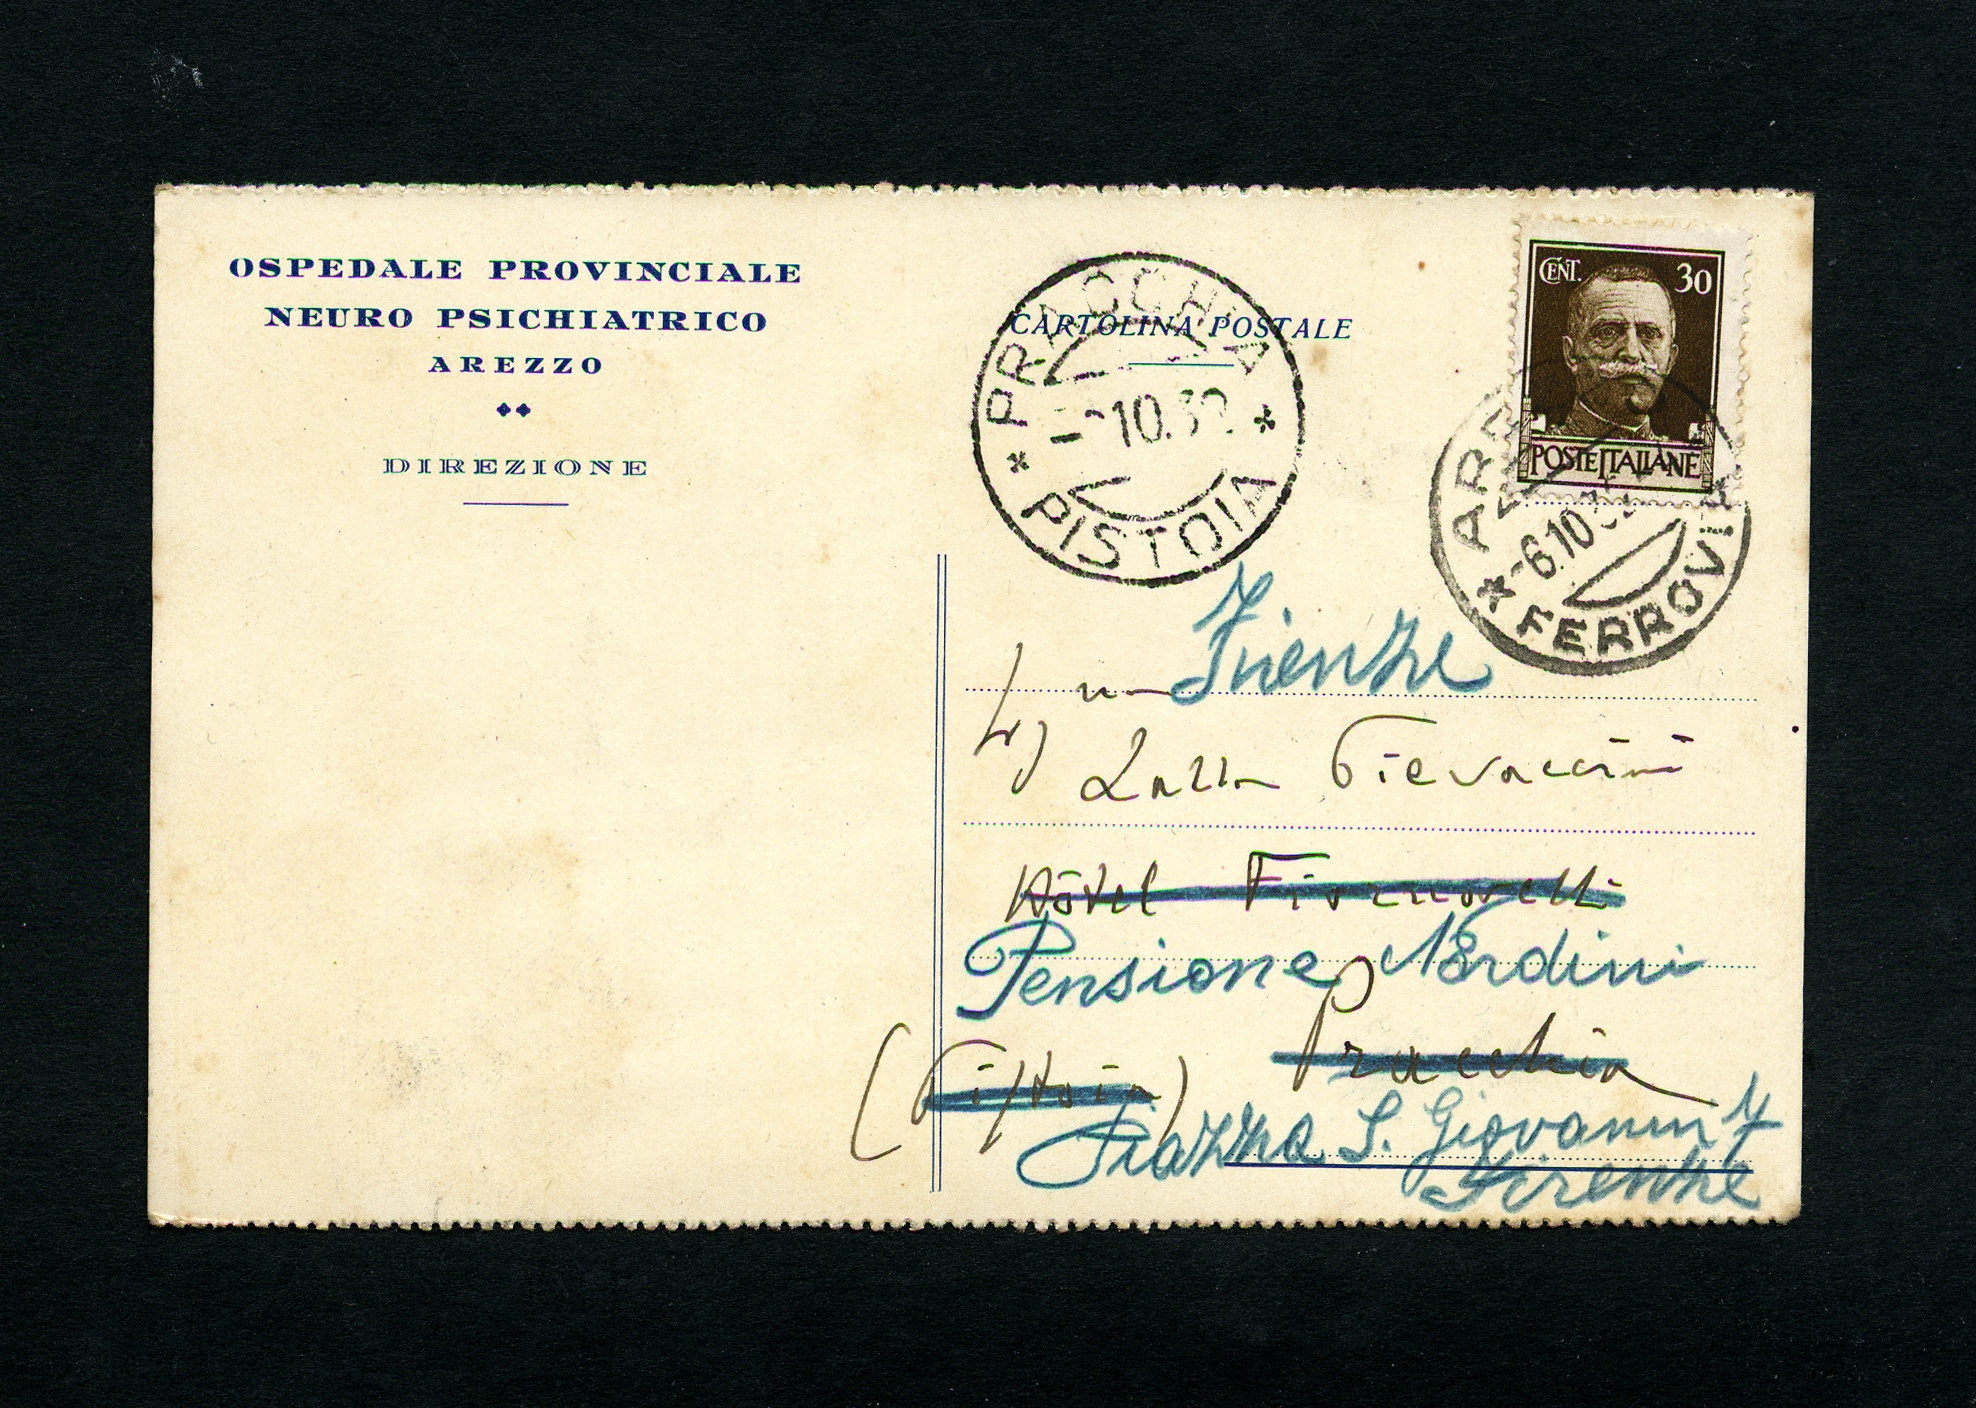 OSPEDALE PROVINCIALE
NEURO PSICHIATRICO
AREZZO
DIREZIONE
CARTOLINA POSTALE
* PRACCHIA *
10.39
PISTOIA
CENT. 30
POSTE ITALIANE
-6.10
* FERROVIA
Firenze
Pievaccini
Hôtel Fiornovelli
Pensione Nardini
Pracchia
(Pistoia)
Piazza S. Giovanni 7
Firenze